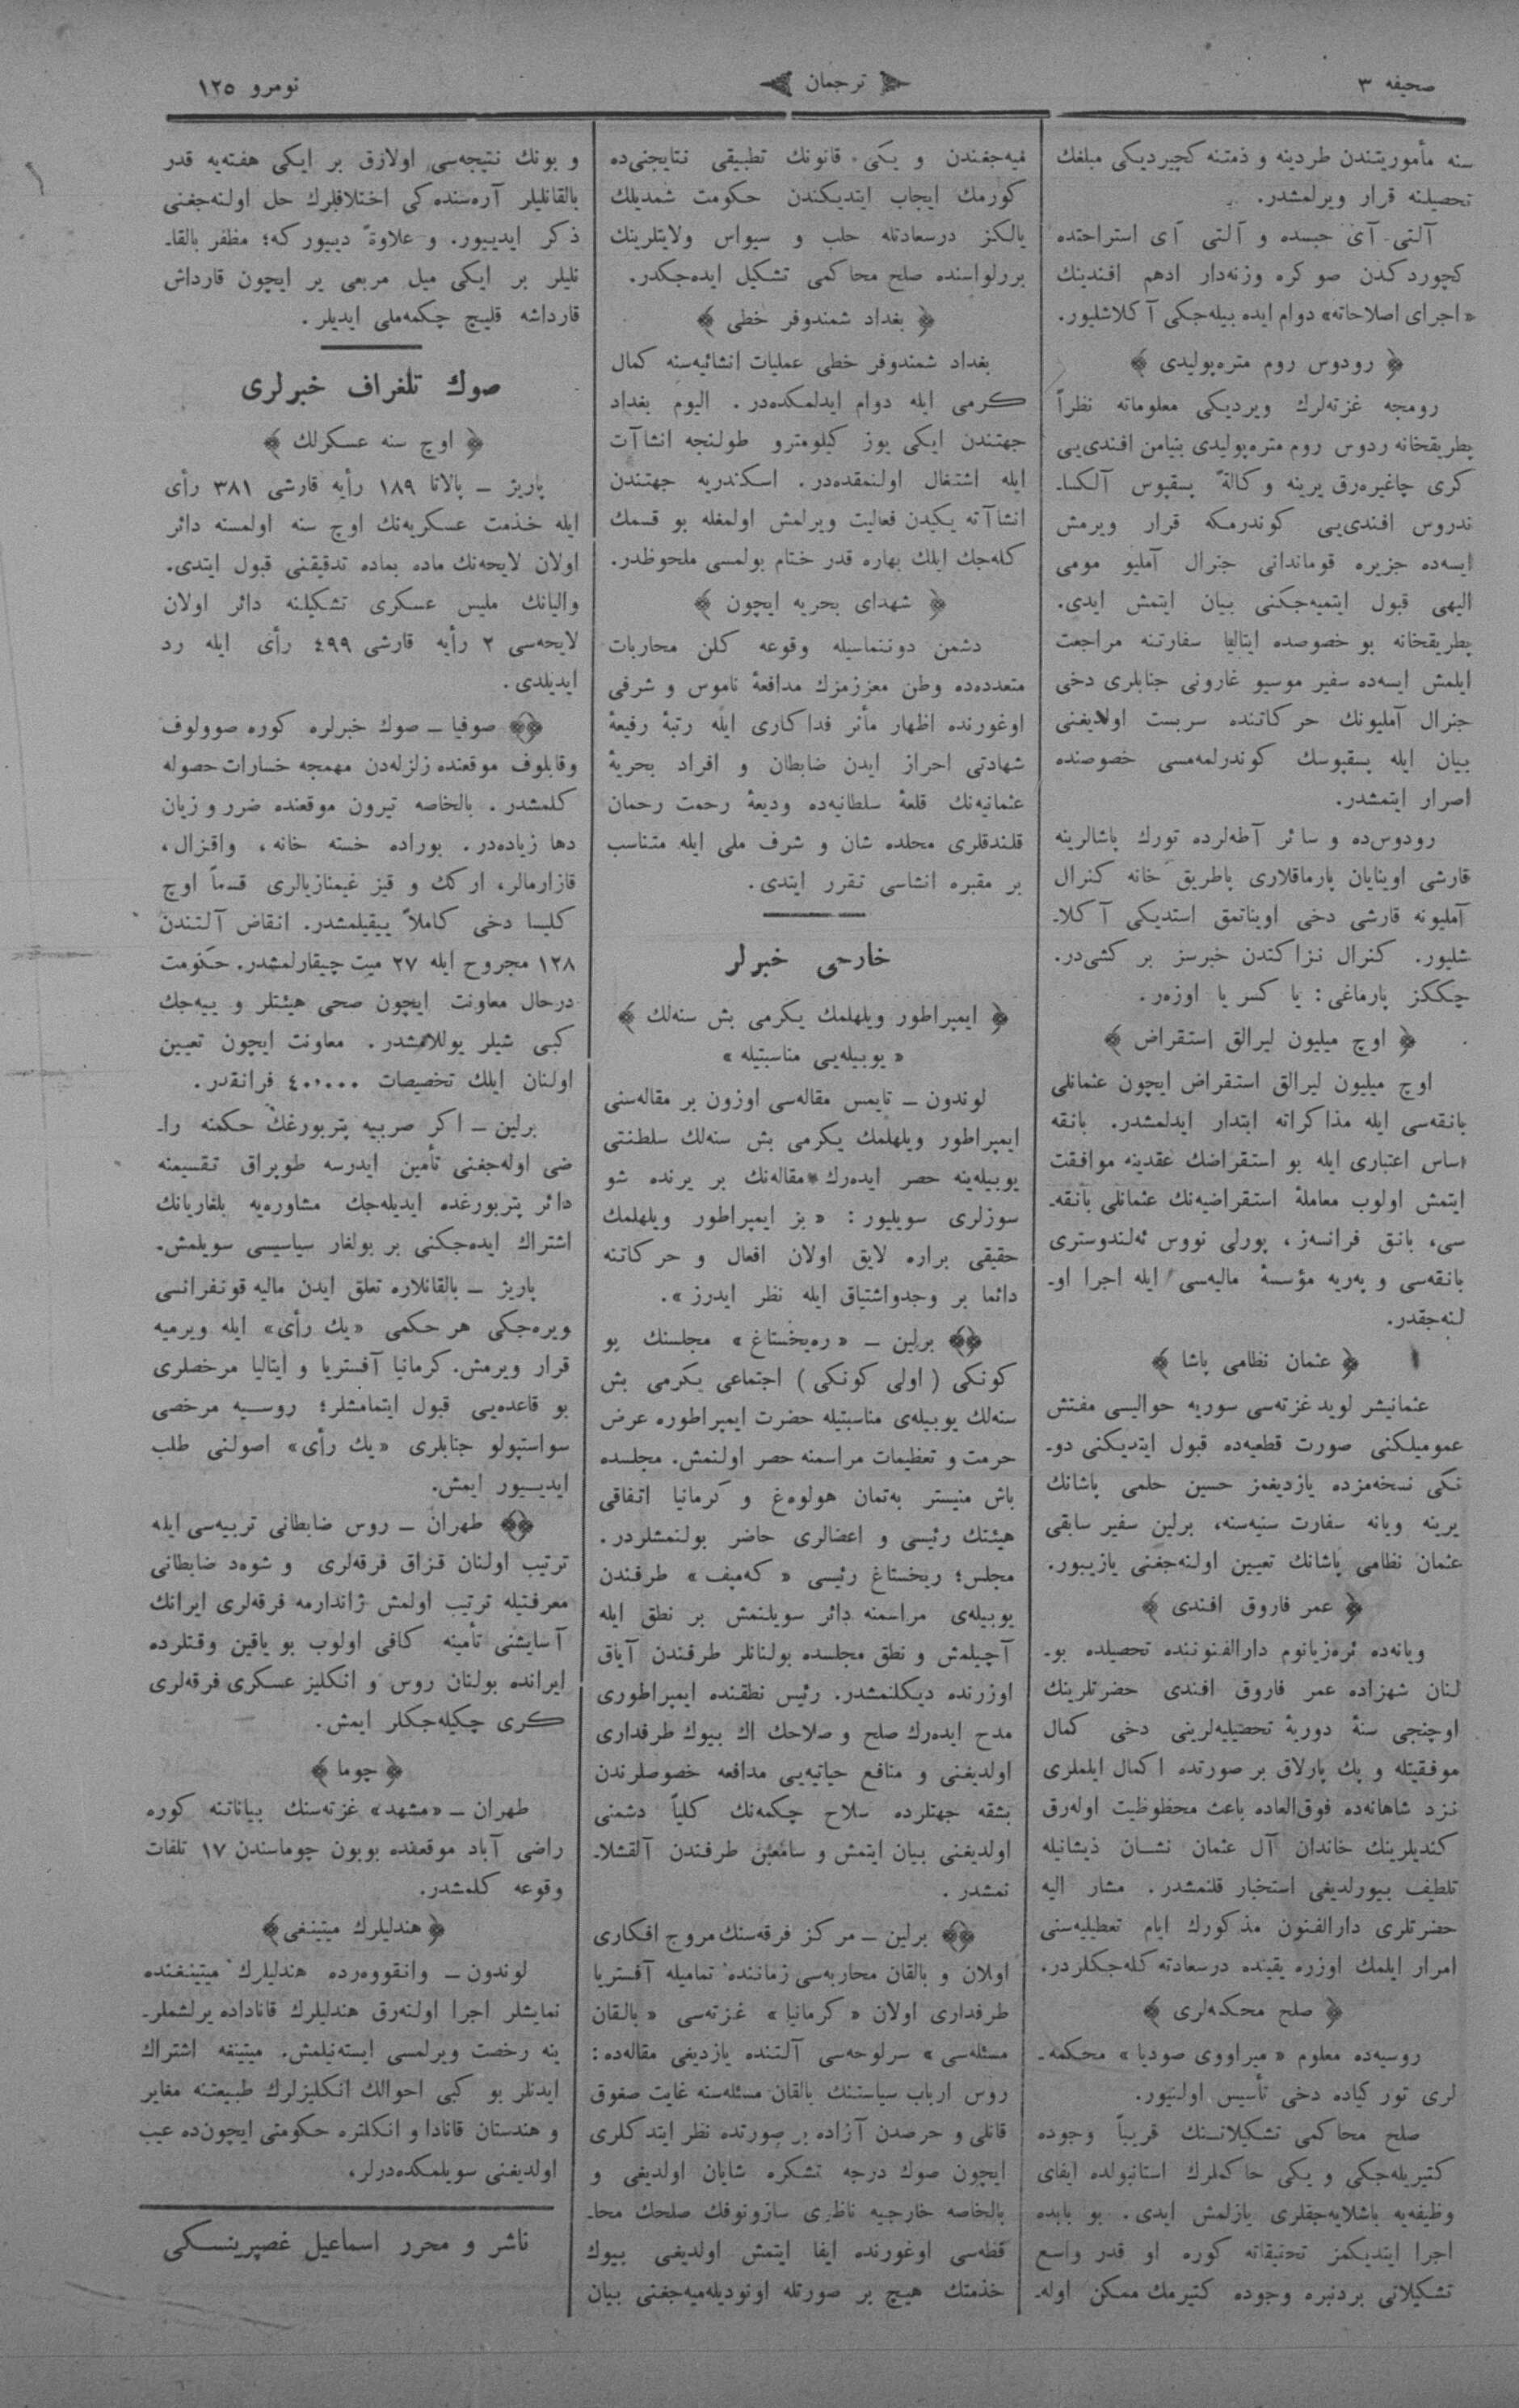 صحیفه ٣
ترجمان
نومرو ١٢٥
سنه مأموریتندن طردینه و ذمتنه کچیردیکی مبلغك
تحصیلنه قرار ویرلمشدر.
آلتی آی حبسده و آلتی آی استراحتده
کچوردکدن صوکره وزنه‌دار ادهم افندینك
«اجرای اصلاحاته» دوام ایده بیله‌جکی آکلاشلیور.
﴿ رودوس روم متره‌پولیدی ﴾
رومجه غزته‌لرك ویردیکی معلوماته نظراً
پطریقخانه ردوس روم متره‌پولیدی بنیامن افندی‌یی
کری چاغیره‌رق یرینه وکالةً پسقپوس آلکسا-
ندروس افندی‌یی کوندرمکه قرار ویرمش
ایسه‌ده جزیره قوماندانی جنرال آملیو مومی
الیهی قبول ایتمیه‌جکنی بیان ایتمش ایدی.
پطریقخانه بو خصوصده ایتالیا سفارتنه مراجعت
ایلمش ایسه‌ده سفیر موسیو غارونی جنابلری دخی
جنرال آملیونك حرکاتنده سربست اولدیغنی
بیان ایله پسقپوسك کوندرلمه‌مسی خصوصنده
اصرار ایتمشدر.
رودوس‌ده و سائر آطه‌لرده تورك پاشالرینه
قارشی اوینایان پارماقلاری پاطریق خانه کنرال
آملیونه قارشی دخی اویناتمق استدیکی آکلا-
شلیور. کنرال نزاکتدن خبرسز بر کشی‌در.
چککز پارماغی: یا کسر یا اوزەر.
﴿ اوچ میلیون لیرالق استقراض ﴾
اوچ میلیون لیرالق استقراض ایچون عثمانلی
بانقه‌سی ایله مذاکراته ابتدار ایدلمشدر. بانقه
اساس اعتباری ایله بو استقراضك عقدینه موافقت
ایتمش اولوب معاملهٔ استقراضیه‌نك عثمانلی بانقه-
سی، بانق فرانسه‌ز، پورلی نووس ئه‌لندوستری
بانقه‌سی و په‌ریه مؤسسهٔ مالیه‌سی ایله اجرا او-
لنه‌جقدر.
﴿ عثمان نظامی پاشا ﴾
عثمانیشر لوید غزته‌سی سوریه حوالیسی مفتش
عمومیلکنی صورت قطعیه‌ده قبول ایتدیکنی دو-
نکی نسخه‌مزده یازدیغمز حسین حلمی پاشانك
یرینه ویانه سفارت سنیه‌سنه، برلین سفیر سابقی
عثمان نظامی پاشانك تعیین اولنه‌جغنی یازیبور.
﴿ عمر فاروق افندی ﴾
ویانه‌ده ئره‌زیانوم دارالفنوننده تحصیلده بو-
لنان شهزاده عمر فاروق افندی حضرتلرینك
اوچنجی سنهٔ دوریهٔ تحصیلیه‌لرینی دخی کمال
موفقیتله و پك پارلاق بر صورتده اکمال ایلملری
نزد شاهانه‌ده فوق‌العاده باعث محظوظیت اوله‌رق
کندیلرینك خاندان آل عثمان نشــان ذیشانیله
تلطیف بیورلدیغی استخبار قلنمشدر. مشار الیه
حضرتلری دارالفنون مذکورك ایام تعطیلیه‌سنی
امرار ایلمك اوزره یقینده درسعادته کله‌جکلردر.
﴿ صلح محکمه‌لری ﴾
روسیه‌ده معلوم «میراووی صودیا» محکمه-
لری تورکیاده دخی تأسیس اولنیور.
صلح محاکمی تشکیلاتــنك قریباً وجوده
کتیریله‌جکی و یکی حاکملرك استانبولده ایفای
وظیفه‌یه باشلایه‌جقلری یازلمش ایدی. بو بابده
اجرا ایتدیکمز تحقیقاته کوره او قدر واسع
تشکیلاتی بردنبره وجوده کتیرمك ممکن اوله-
میه‌جغندن و یکی قانونك تطبیقی نتایجنی‌ده
کورمك ایجاب ایتدیکندن حکومت شمدیلك
یالکز درسعادتله حلب و سیواس ولایتلرینك
بررلواسنده صلح محاکمی تشکیل ایده‌جکدر.
﴿ بغداد شمندوفر خطی ﴾
بغداد شمندوفر خطی عملیات انشائیه‌سنه کمال
کرمی ایله دوام ایدلمکده‌در. الیوم بغداد
جهتندن ایکی یوز کیلومترو طولنجه انشاآت
ایله اشتغال اولنمقده‌در. اسکندریه جهتندن
انشاآته یکیدن فعالیت ویرلمش اولمغله بو قسمك
کله‌جك ایلك بهاره قدر ختام بولمسی ملحوظدر.
﴿ شهدای بحریه ایچون ﴾
دشمن دوننماسیله وقوعه کلن محاربات
متعدده‌ده وطن معززمزك مدافعهٔ ناموس و شرفی
اوغورنده اظهار مأثر فداکاری ایله رتبهٔ رفیعهٔ
شهادتی احراز ایدن ضابطان و افراد بحریهٔ
عثمانیه‌نك قلعهٔ سلطانیه‌ده ودیعهٔ رحمت رحمان
قلندقلری محلده شان و شرف ملی ایله متناسب
بر مقبره انشاسی تقرر ایتدی.
خارجی خبرلر
﴿ ایمپراطور ویلهلمك یکرمی بش سنه‌لك ﴾
« یوبیله‌یی مناسبتیله »
لوندون ــ تایمس مقاله‌سی اوزون بر مقاله‌سنی
ایمپراطور ویلهلمك یکرمی بش سنه‌لك سلطنتی
یوبیله‌ینه حصر ایده‌رك مقاله‌نك بر یرنده شو
سوزلری سویلیور: « بز ایمپراطور ویلهلمك
حقیقی براره لایق اولان افعال و حرکاتنه
دائما بر وجدواشتیاق ایله نظر ایدرز ».
برلین ــ « ره‌یخستاغ » مجلسنك بو
کونکی ( اولی کونکی ) اجتماعی یکرمی بش
سنه‌لك یوبیله‌ی مناسبتیله حضرت ایمپراطوره عرض
حرمت و تعظیمات مراسمنه حصر اولنمش. مجلسده
باش منیستر به‌تمان هولوه‌غ و کرمانیا اتفاقی
هیئتك رئیسی و اعضالری حاضر بولنمشلردر.
مجلس؛ ریخستاغ رئیسی « که‌میف » طرفندن
یوبیله‌ی مراسمنه دائر سویلنمش بر نطق ایله
آچیلمش و نطق مجلسده بولنانلر طرفندن آیاق
اوزرنده دیکلنمشدر. رئیس نطقنده ایمپراطوری
مدح ایده‌رك صلح و صلاحك اك بیوك طرفداری
اولدیغنی و منافع حیاتیه‌یی مدافعه خصوصلرندن
بشقه جهتلرده سلاح چکمه‌نك کلیاً دشمنی
اولدیغنی بیان ایتمش و سامعین طرفندن آلقشلا-
نمشدر.
برلین ــ مرکز فرقه‌سنك مروج افکاری
اولان و بالقان محاربه‌سی زماننده تمامیله آفستریا
طرفداری اولان « کرمانیا » غزته‌سی « بالقان
مسئله‌سی » سرلوحه‌سی آلتنده یازدیغی مقاله‌ده:
روس ارباب سیاستنك بالقان مسئله‌سنه غایت صغوق
قانلی و حرصدن آزاده بر صورتده نظر ایتدکلری
ایچون صوك درجه تشکره شایان اولدیغی و
بالخاصه خارجیه ناظری سازونوفك صلحك محا-
فظه‌سی اوغورنده ایفا ایتمش اولدیغی بیوك
خذمتك هیچ بر صورتله اونودیله‌میه‌جغنی بیان
و بونك نتیجه‌سی اولازق بر ایکی هفته‌یه قدر
بالقانلیلر آره‌سنده‌کی اختلافلرك حل اولنه‌جغنی
ذکر ایدییور. و علاوةً دییورکه؛ مظفر بالقا-
نلیلر بر ایکی میل مربعی یر ایچون قارداش
قارداشه قلیچ چکمه‌ملی ایدیلر.
صوك تلغراف خبرلری
﴿ اوچ سنه عسکرلك ﴾
پاریژ ــ پالاتا ١٨٩ رأیه قارشی ٣٨١ رأی
ایله خذمت عسکریه‌نك اوچ سنه اولمسنه دائر
اولان لایحه‌نك ماده بماده تدقیقنی قبول ایتدی.
والیانك ملیس عسکری تشکیلنه دائر اولان
لایحه‌سی ٢ رأیه قارشی ٤٩٩ رأی ایله رد
ایدیلدی.
صوفیا ــ صوك خبرلره کوره صوولوف
وقابلوف موقعنده زلزله‌دن مهمجه خسارات حصوله
کلمشدر. بالخاصه تیرون موقعنده ضرر و زیان
دها زیاده‌در. بوراده خسته خانه، واقزال،
قازارمالر، ارکك و قیز غیمنازیالری قسماً اوچ
کلیسا دخی کاملاً ییقیلمشدر. انقاض آلتندن
١٢٨ مجروح ایله ٢٧ میت چیقارلمشدر. حکومت
درحال معاونت ایچون صحی هیئتلر و ییه‌جك
کبی شیلر یوللامشدر. معاونت ایچون تعیین
اولنان ایلك تخصیصات ٤٠،٠٠٠ فرانقدر.
برلین ــ اکر صربیه پتربورغك حکمنه را-
ضی اوله‌جغنی تأمین ایدرسه طوپراق تقسیمنه
دائر پتربورغده ایدیله‌جك مشاوره‌یه بلغاریانك
اشتراك ایده‌جکنی بر بولغار سیاسیسی سویلمش.
پاریژ ــ بالقانلاره تعلق ایدن مالیه قونفرانسی
ویره‌جکی هر حکمی «یك رأی» ایله ویرمیه
قرار ویرمش. کرمانیا آفستریا و ایتالیا مرخصلری
بو قاعده‌یی قبول ایتمامشلر؛ روســیه مرخصی
سواستپولو جنابلری «یك رأی» اصولنی طلب
ایدیــیور ایمش.
طهران ــ روس ضابطانی تربیه‌سی ایله
ترتیب اولنان قزاق فرقه‌لری و شوه‌د ضابطانی
معرفتیله ترتیب اولمش ژاندارمه فرقه‌لری ایرانك
آسایشنی تأمینه کافی اولوب بو یاقین وقتلرده
ایرانده بولنان روس و انکلیز عسکری فرقه‌لری
کری چکیله‌جکلر ایمش.
﴿ چوما ﴾
طهران ــ «مشهد» غزته‌سنك بیاناتنه کوره
راضی آباد موقعنده بوبون چوماسندن ١٧ تلفات
وقوعه کلمشدر.
﴿ هندلیلرك میتینغی ﴾
لوندون ــ وانقووه‌رده هندلیلرك میتینغنده
نمایشلر اجرا اولنه‌رق هندلیلرك قاناداده یرلشملر-
ینه رخصت ویرلمسی ایسته‌نیلمش. میتینغه اشتراك
ایدنلر بو کبی احوالك انکلیزلرك طبیعتنه مغایر
و هندستان قانادا و انکلتره حکومتی ایچون‌ده عیب
اولدیغنی سویلمکده‌درلر.
ناشر و محرر اسماعیل غصپرینسکی